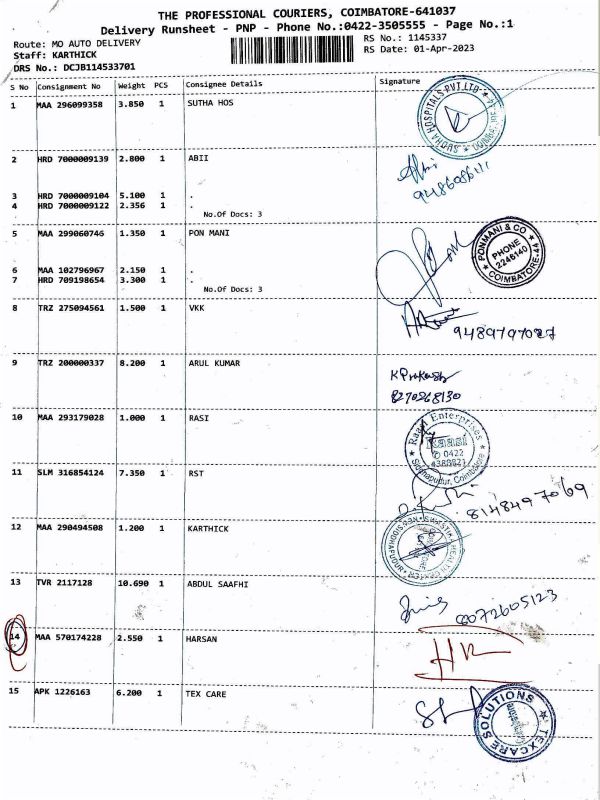 THE PROFESSIONAL COURIERS, COIMBATORE-641037
Delivery Runsheet - PNP - Phone No.:0422-3505555 - Page No.:1
Route: MO AUTO DELIVERY
RS No.: 1145337
Staff: KARTHICK
RS Date: 01-Apr-2023
DRS No.: DCJB114533701
S No Consignment No Weight PCS Consignee Details Signature
1 MAA 296099358 3.850 1 SUTHA HOS
HOSPITALS PVT.LTD
2 HRD 7000009139 2.800 1 ABII
3 HRD 7000009104 5.100 1 .
4 HRD 7000009122 2.356 1 .
No.Of Docs: 3
5 MAA 299060746 1.350 1 PON MANI
PONMANI & CO
PHONE
2246140
COIMBATORE-44
6 MAA 102796967 2.150 1 .
7 HRD 709198654 3.300 1 .
No.Of Docs: 3
8 TRZ 275094561 1.500 1 VKK
9489797027
9 TRZ 200000337 8.200 1 ARUL KUMAR
K Prakash
8270568130
10 MAA 293179028 1.000 1 RASI
Raasi Enterprises
Raasi
0422
Siddhapudur, Coimbatore
11 SLM 316854124 7.350 1 RST
8148497069
12 MAA 290494508 1.200 1 KARTHICK
13 TVR 2117128 10.690 1 ABDUL SAAFHI
8072605123
14 MAA 570174228 2.550 1 HARSAN
15 APK 1226163 6.200 1 TEX CARE
TEXCARE SOLUTIONS